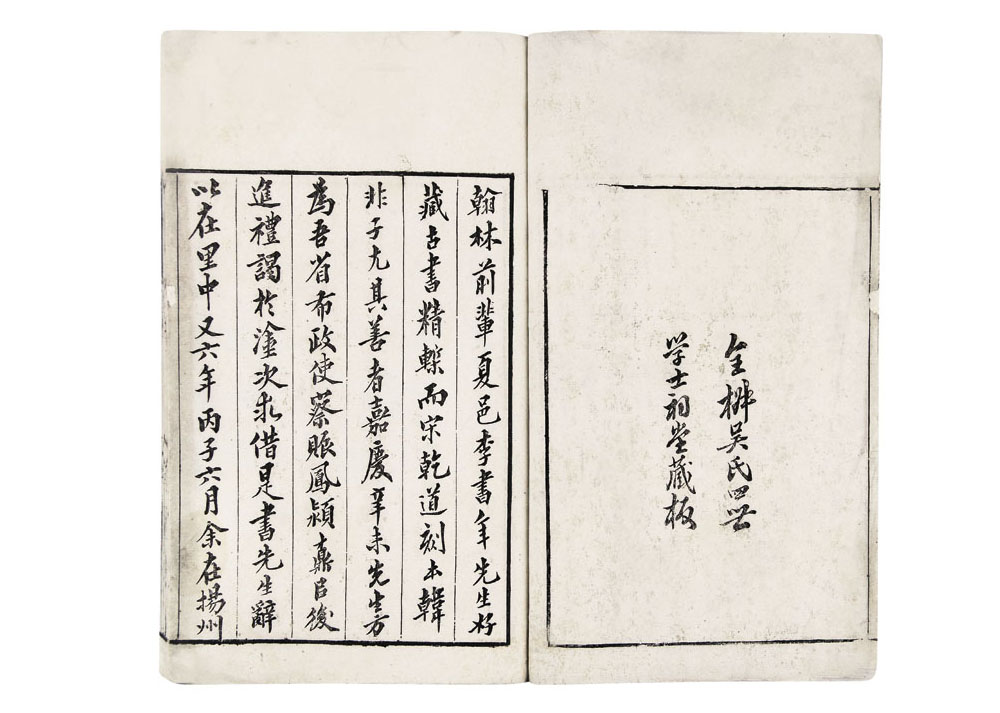 全椒吳氏四世
学士祠堂藏板
翰林前輩夏邑李書年先生好
藏古書精槧而宋乾道刻本韓
非子尤其善者嘉慶辛未先生方
為吾省布政使蔡賑鳳潁鼒以後
進禮謁於塗次求借是書先生辭
以在里中又六年丙子六月余在揚州